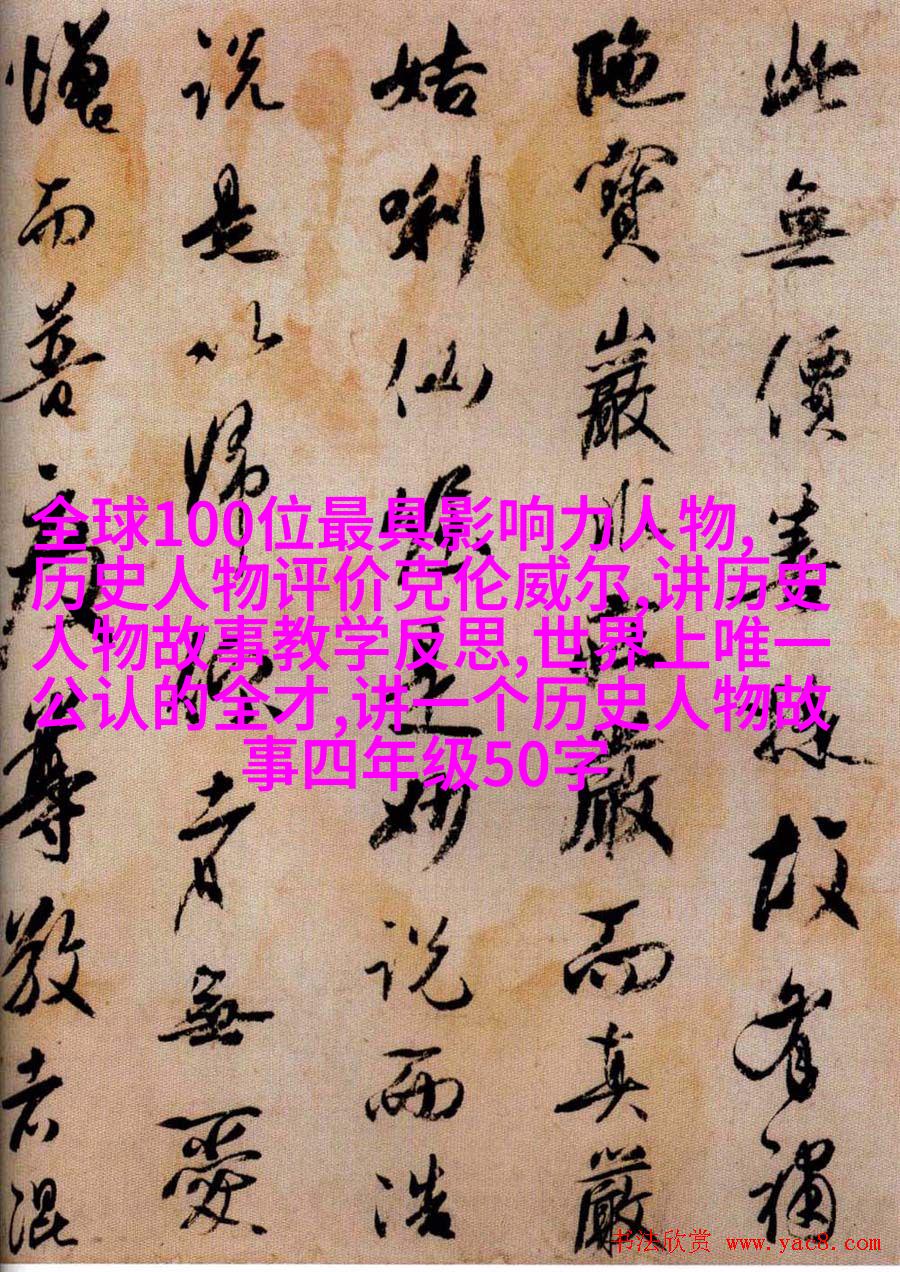 此無價善珠故有補
陁寶嚴
嚴而真嚴
姑唎仙
説而浩
説是以歸
者無愛
憎而普
尊敬者混
全球100位最具影响力人物,
历史人物评价克伦威尔,讲历史
人物故事教学反思,世界上唯一
公认的全才,讲一个历史人物故
事四年级50字
书法欣赏 www.yac8.com